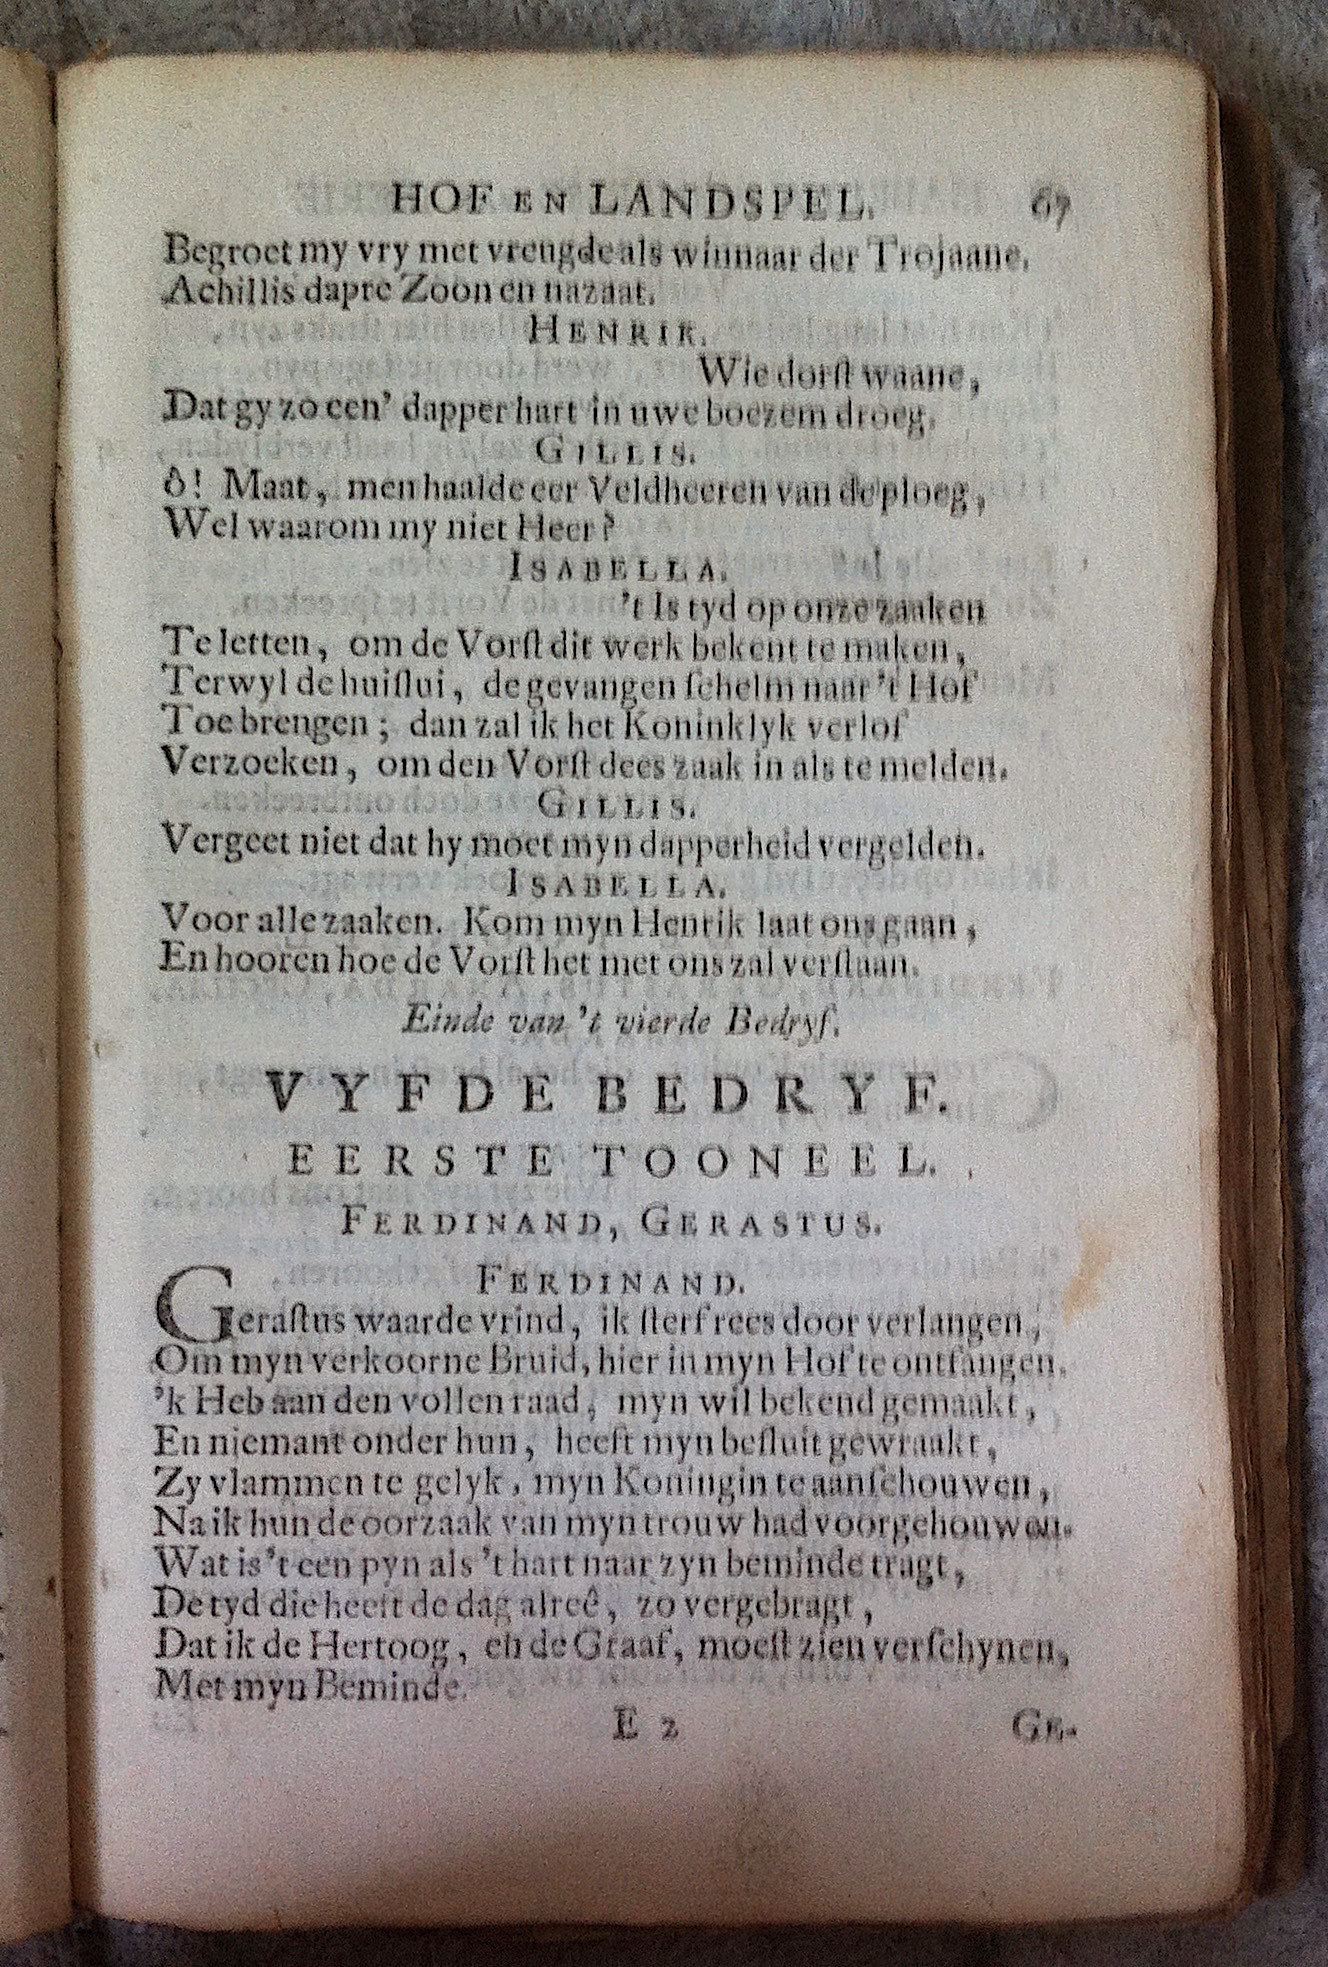 HOF EN LANDSPEL. 67
Begroet my vry met vreugde als winnaar der Trojaane,
Achillis dapre Zoon en nazaat.
HENRIK.
Wie dorst waane,
Dat gy zo een' dapper hart in uwe boezem droeg.
GILLIS.
ô! Maat, men haalde eer Veldheeren van de ploeg,
Wel waarom my niet Heer?
ISABELLA.
't Is tyd op onze zaaken
Te letten, om de Vorst dit werk bekent te maken,
Terwyl de huislui, de gevangen schelm naar 't Hof
Toe brengen; dan zal ik het Koninklyk verlof
Verzoeken, om den Vorst dees zaak in als te melden.
GILLIS.
Vergeet niet dat hy moet myn dapperheid vergelden.
ISABELLA.
Voor alle zaaken. Kom myn Henrik laat ons gaan,
En hooren hoe de Vorst het met ons zal verstaan.
Einde van 't vierde Bedryf.
VYFDE BEDRYF.
EERSTE TOONEEL.
FERDINAND, GERASTUS.
FERDINAND.
Gerastus waarde vrind, ik sterf rees door verlangen,
Om myn verkoorne Bruid, hier in myn Hof te ontfangen.
'k Heb aan den vollen raad, myn wil bekend gemaakt,
En niemant onder hun, heeft myn besluit gewraakt,
Zy vlammen te gelyk, myn Koningin te aanschouwen,
Na ik hun de oorzaak van myn trouw had voorgehouwen.
Wat is 't een pyn als 't hart naar zyn beminde tragt,
De tyd die heeft de dag alreê, zo vergebragt,
Dat ik de Hertoog, en de Graaf, moest zien verschynen,
Met myn Beminde.
E 2 GE-